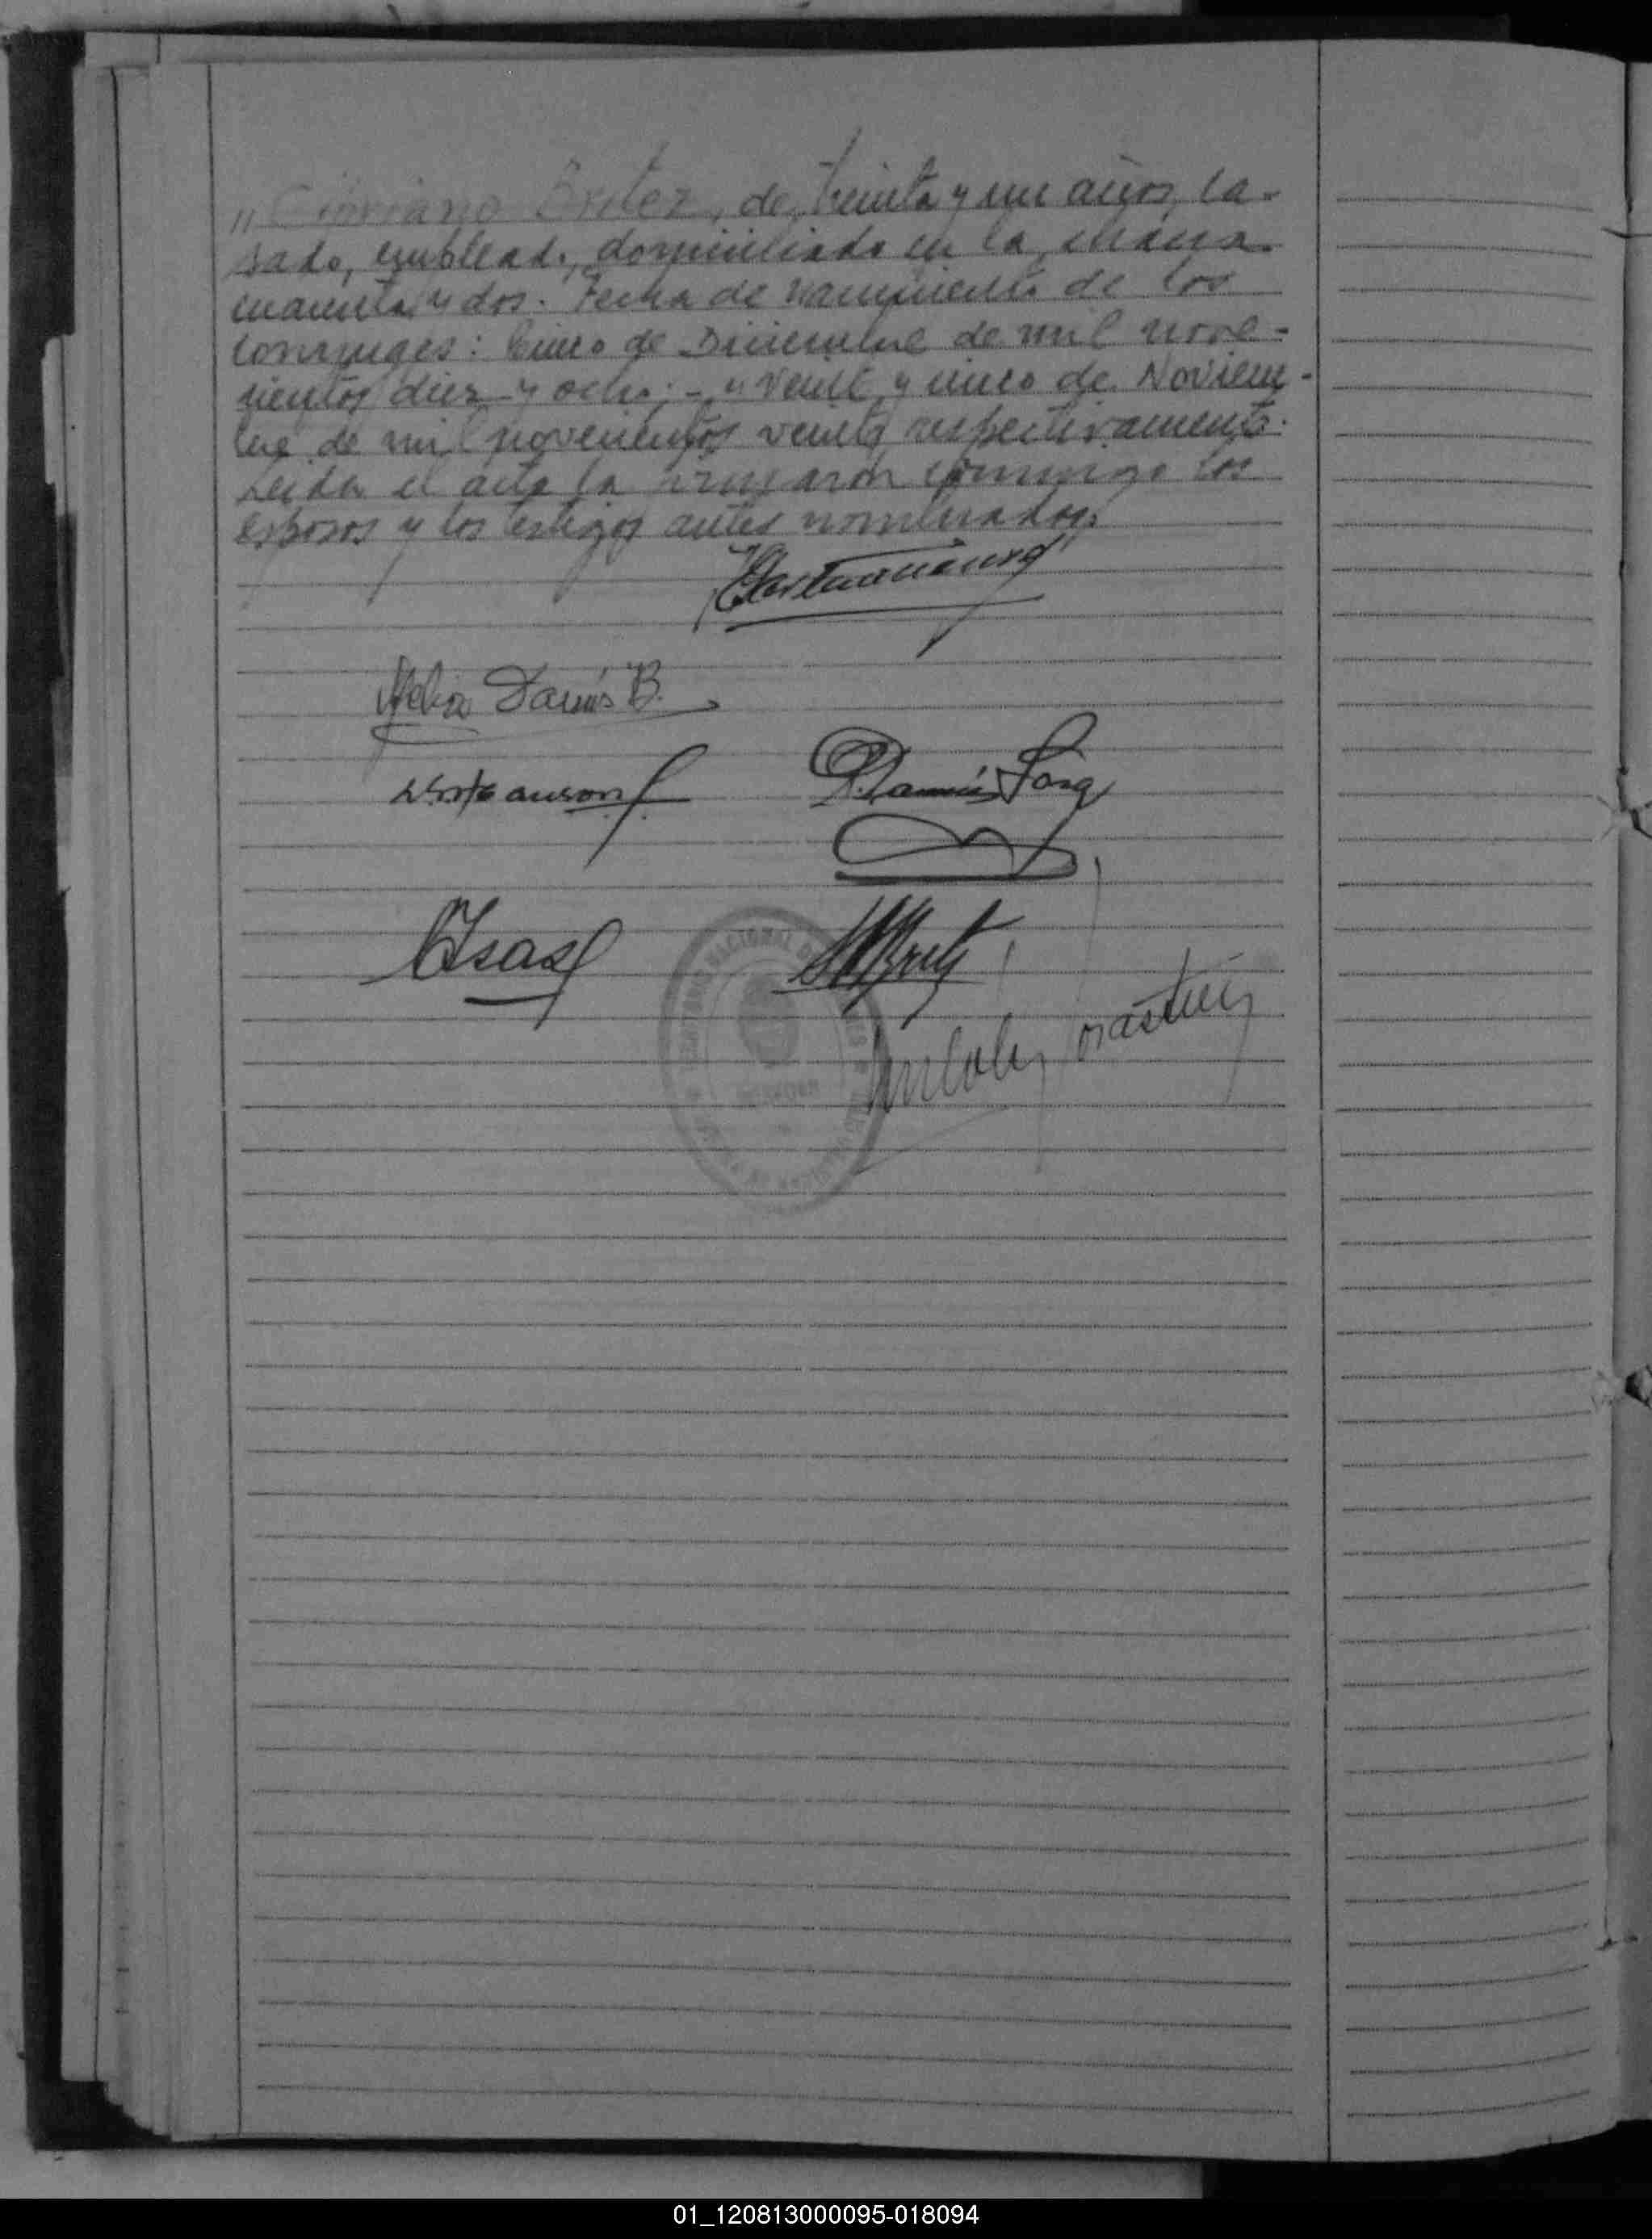 " Cipriano Britez, de treinta y un años, ca-
sado, empleado, domiciliado en la chacra
cuarenta y dos. Fecha de nacimiento de los
conyuges: Cinco de Diciembre de mil nove-
cientos diez y ocho; - y Veinte y cinco de Noviem-
bre de mil novecientos veinte, respectivamente.
Leida el acta la firmaron conmigo los
esposos y los testigos antes nombrados.
Delia Darús B.
Ramón Sosa
NACIONAL
01_120813000095-018094